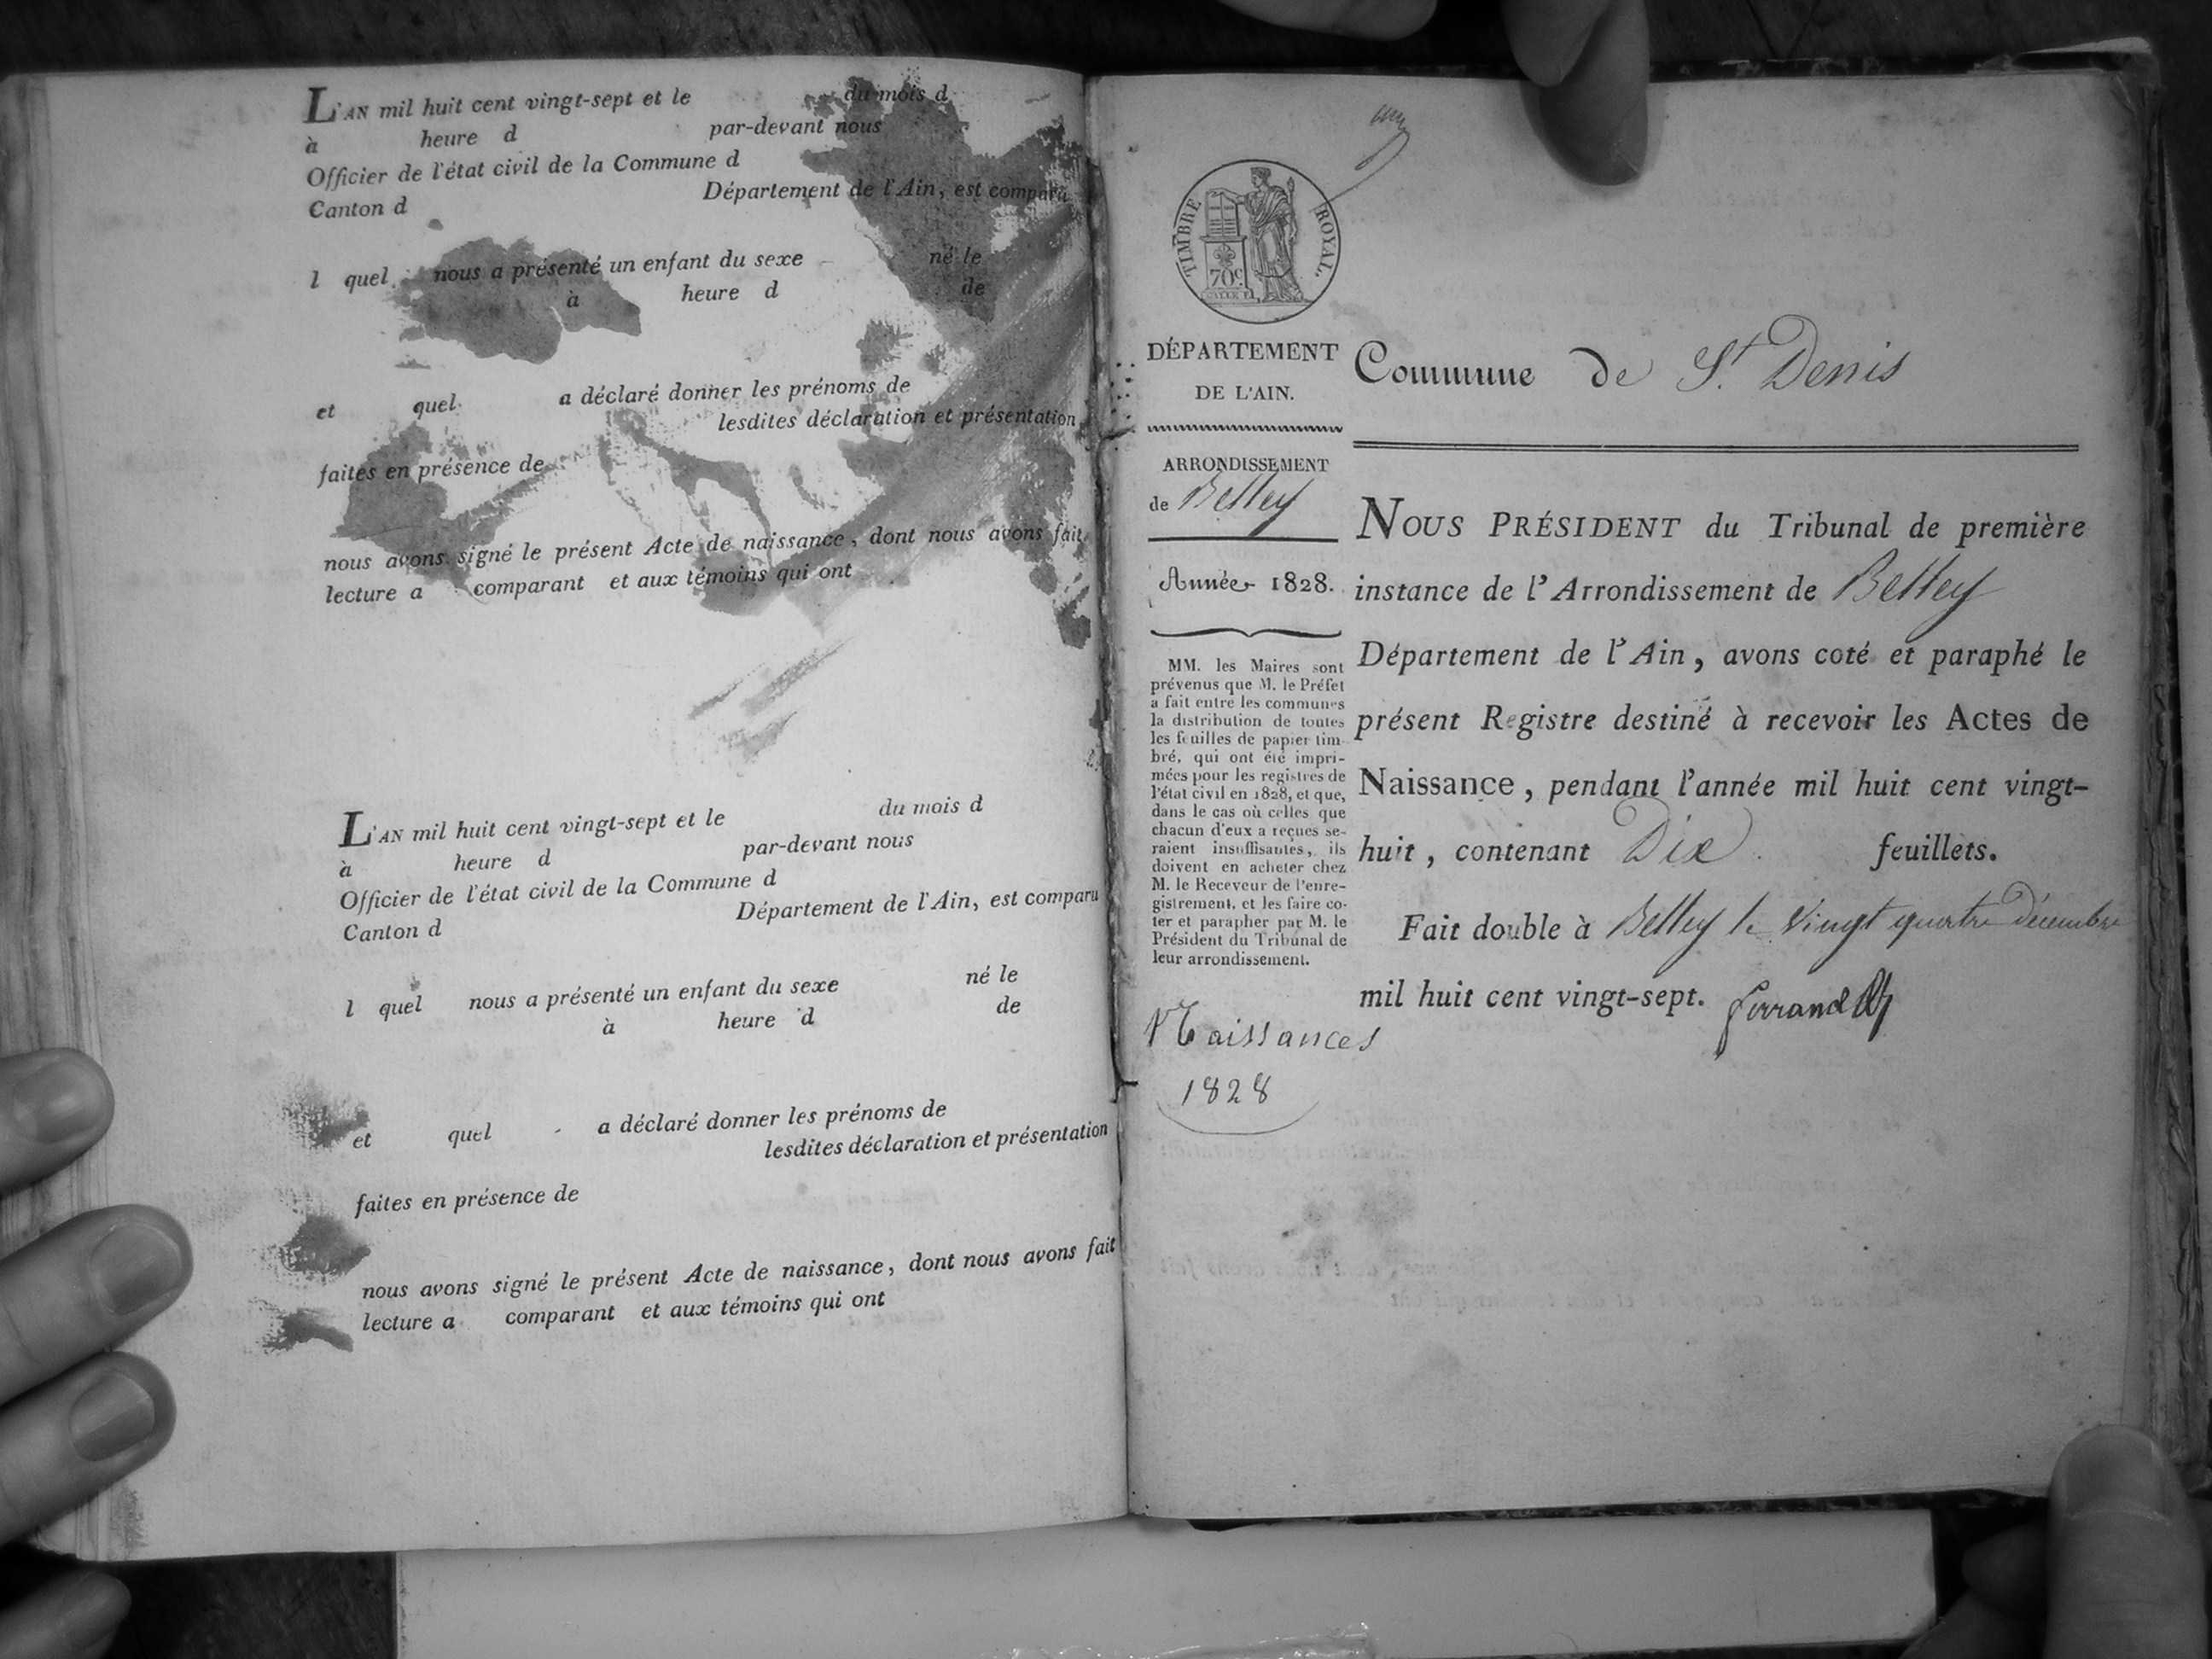 L'AN mil huit cent vingt-sept et le du mois d
à heure d par-devant nous
Officier de l'état civil de la Commune d
Canton d Département de l'Ain, est comparu
l quel nous a présenté un enfant du sexe né le
à heure d de
et quel a déclaré donner les prénoms de
lesdites déclaration et présentation
faites en présence de
nous avons signé le présent Acte de naissance, dont nous avons fait
lecture a comparant et aux témoins qui ont
L'AN mil huit cent vingt-sept et le du mois d
à heure d par-devant nous
Officier de l'état civil de la Commune d
Canton d Département de l'Ain, est comparu
l quel nous a présenté un enfant du sexe né le
à heure d de
et quel a déclaré donner les prénoms de
lesdites déclaration et présentation
faites en présence de
nous avons signé le présent Acte de naissance, dont nous avons fait
lecture a comparant et aux témoins qui ont
TIMBRE ROYAL.
70c
DÉPARTEMENT
DE L'AIN.
ARRONDISSEMENT
de Belley
Année 1828.
MM. les Maires sont
prévenus que M. le Préfet
a fait entre les communes
la distribution de toutes
les feuilles de papier tim-
bré, qui ont été impri-
mées pour les registres de
l'état civil en 1828, et que,
dans le cas où celles que
chacun d'eux a reçues se-
raient insuffisantes, ils
doivent en acheter chez
M. le Receveur de l'enre-
gistrement, et les faire co-
ter et parapher par M. le
Président du Tribunal de
leur arrondissement.
Naissances
1828
Commune de St. Denis
NOUS PRÉSIDENT du Tribunal de première
instance de l'Arrondissement de Belley
Département de l'Ain, avons coté et paraphé le
présent Registre destiné à recevoir les Actes de
Naissance, pendant l'année mil huit cent vingt-
huit, contenant Dix feuillets.
Fait double à Belley le vingt quatre décembre
mil huit cent vingt-sept. Ferrand